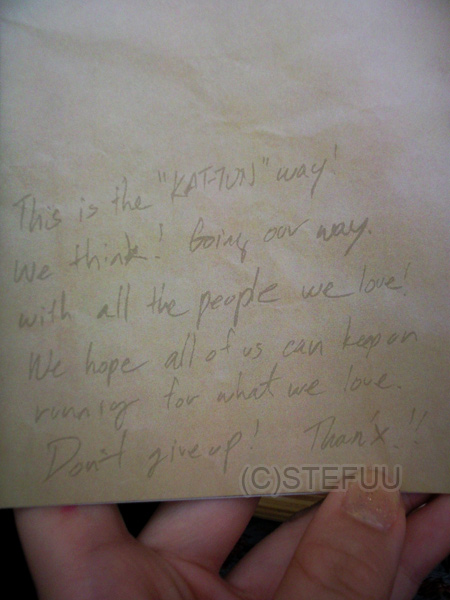 This is the "KAT-TUN" way!
We think! Going our way.
with all the people we love!
We hope all of us can keep on
running for what we love.
Don't give up! Than'x!!!
(C)STEFUU